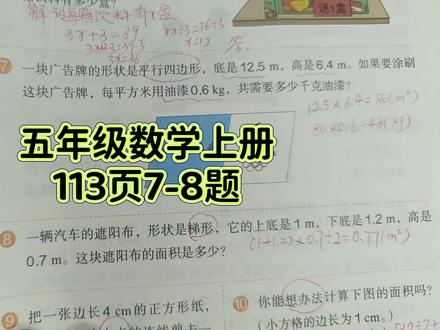 送1盒
3x+3=39
3x+3-3=39-3
3x=36
3x÷3=36÷3
x=12
答
7 一块广告牌的形状是平行四边形，底是12.5 m，高是6.4 m。如果要涂刷
这块广告牌，每平方米用油漆0.6 kg，共需要多少千克油漆？
12.5×6.4=80(m²)
80×0.6=48(kg)
五年级数学上册
113页7-8题
8 一辆汽车的遮阳布，形状是梯形，它的上底是1 m，下底是1.2 m，高是
(1+1.2)×0.7÷2=0.77(m²)
0.7 m。这块遮阳布的面积是多少？
9 把一张边长4 cm的正方形纸，
10 你能想办法计算下图的面积吗？
（小方格的边长为1 cm。）